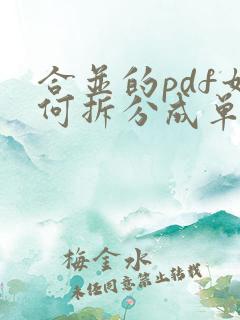 合并的pdf如
何拆分成单
梅金水
未经同意禁止转载